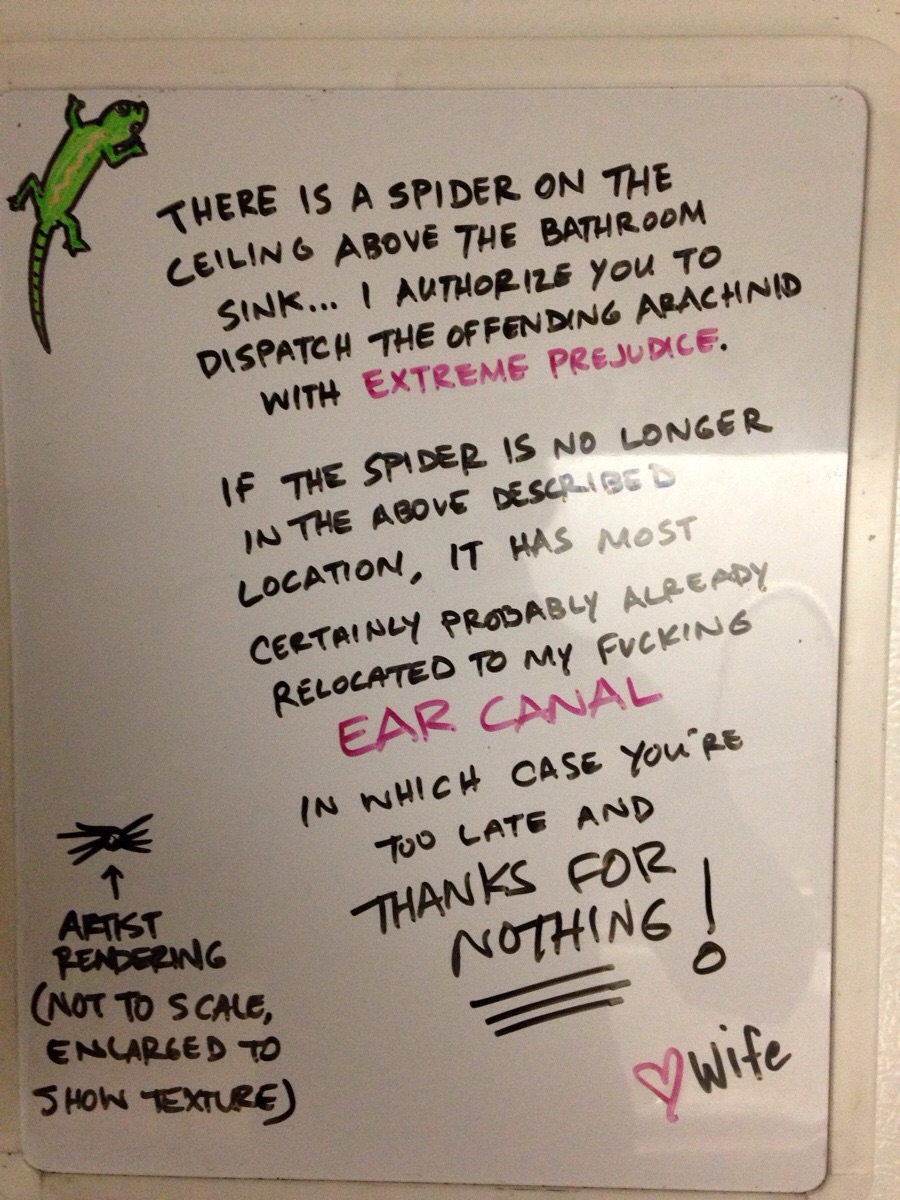 THERE IS A SPIDER ON THE
CEILING ABOVE THE BATHROOM
SINK... I AUTHORIZE YOU TO
DISPATCH THE OFFENDING ARACHNID
WITH EXTREME PREJUDICE.
IF THE SPIDER IS NO LONGER
IN THE ABOVE DESCRIBED
LOCATION, IT HAS MOST
CERTAINLY PROBABLY ALREADY
RELOCATED TO MY FUCKING
EAR CANAL
IN WHICH CASE YOU'RE
TOO LATE AND
THANKS FOR
NOTHING!
♡ Wife
↑
ARTIST
RENDERING
(NOT TO SCALE,
ENLARGED TO
SHOW TEXTURE)